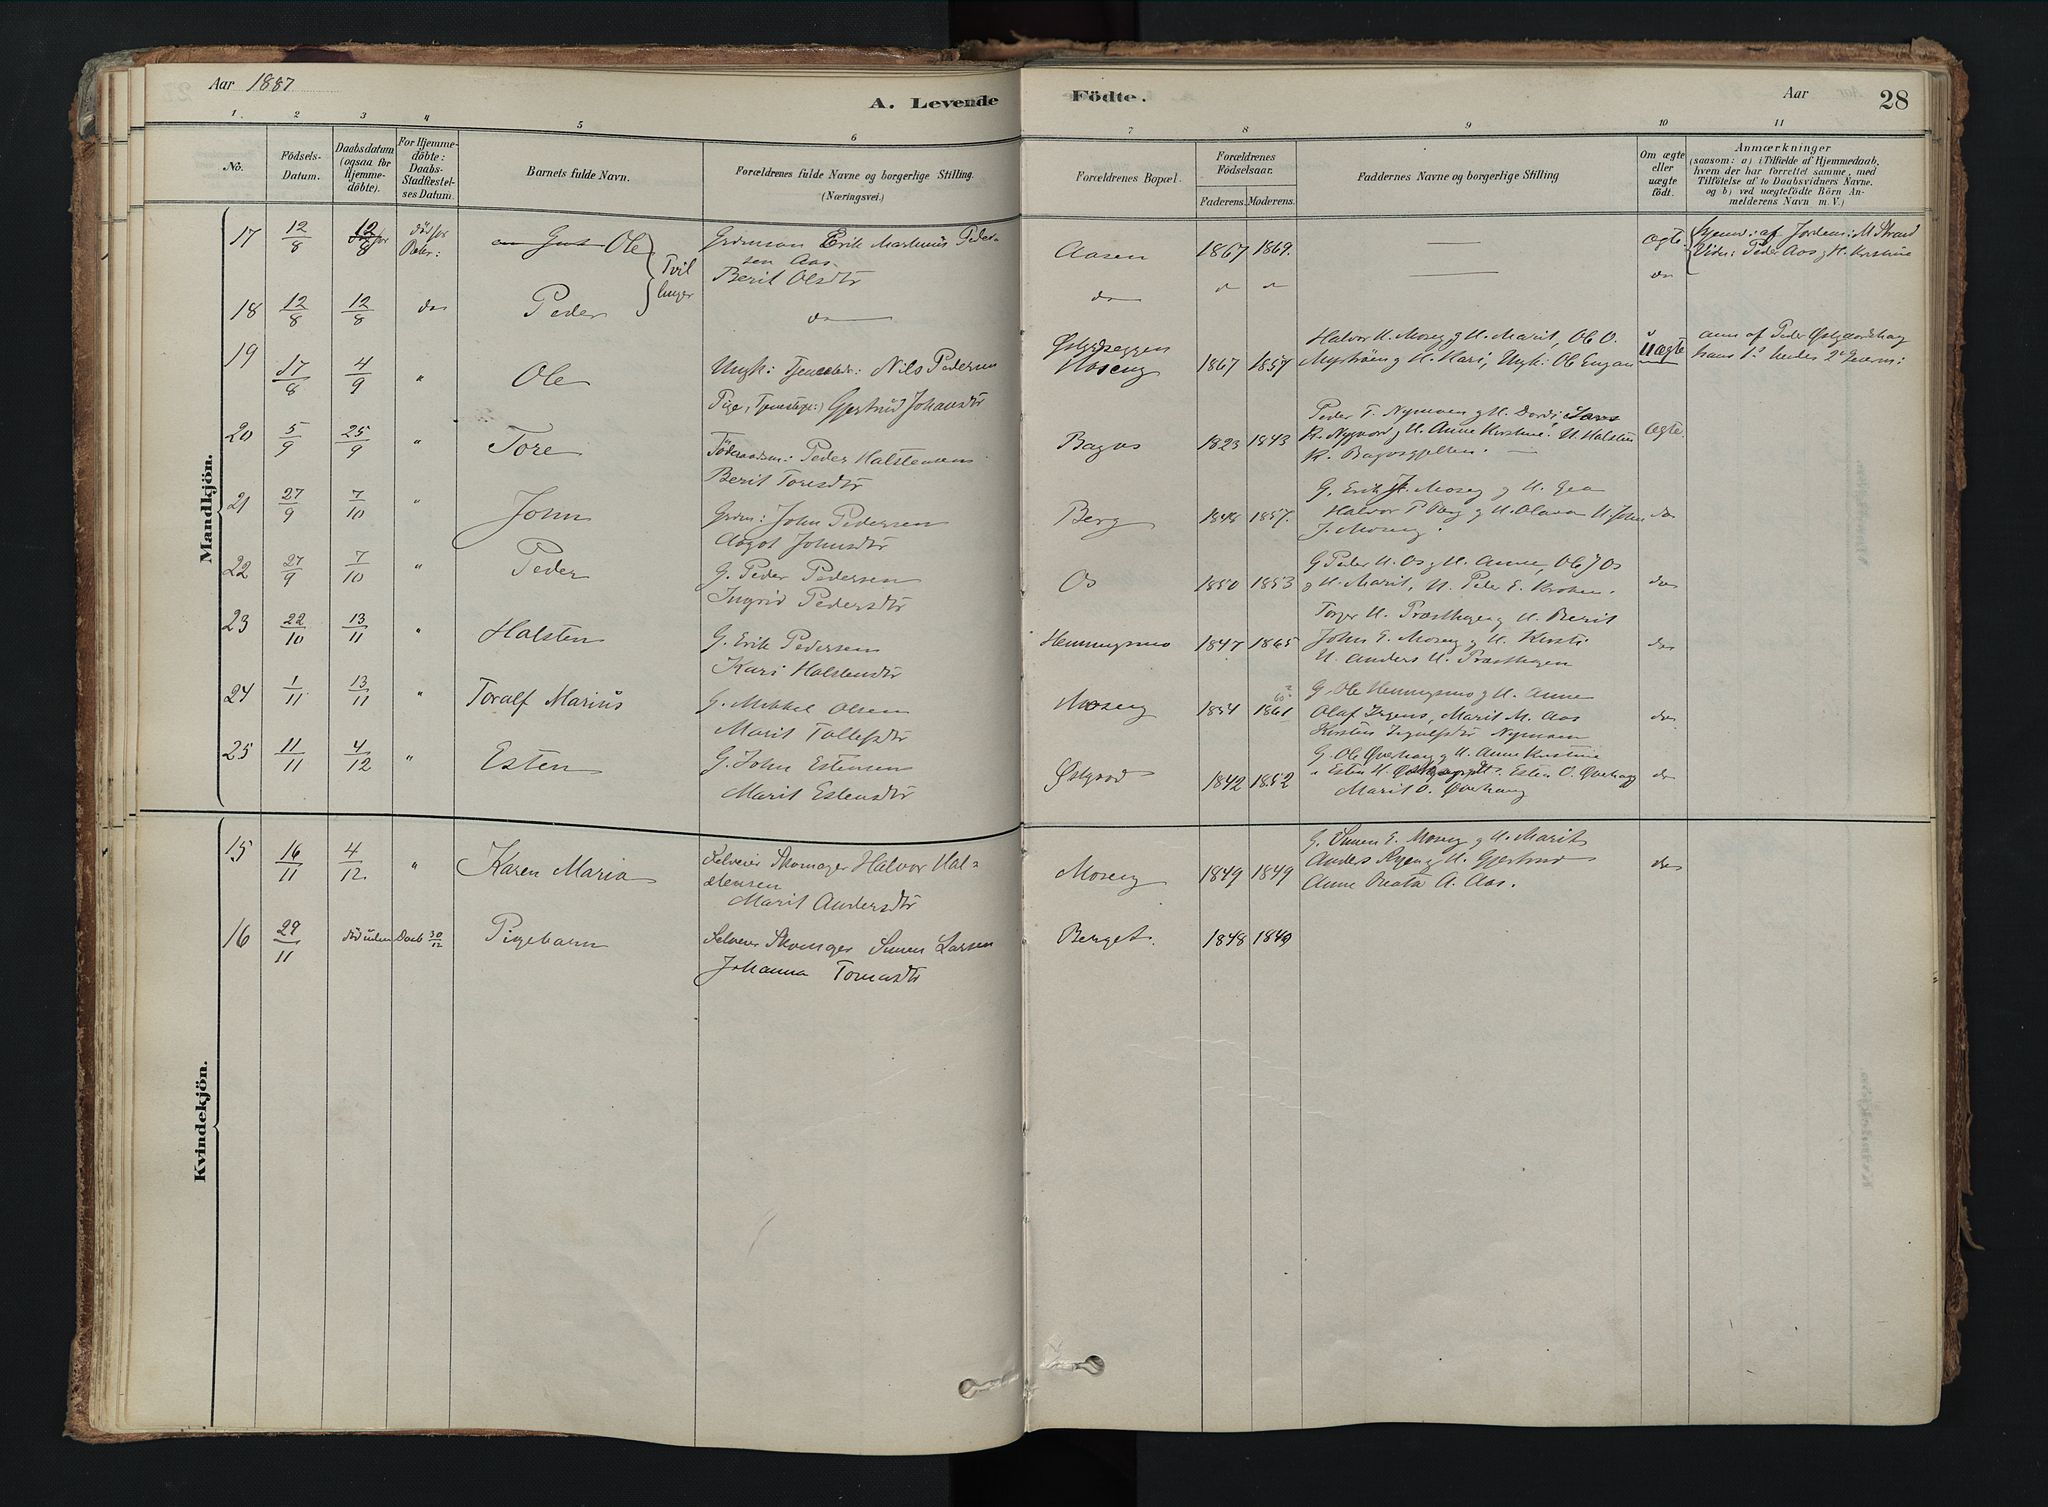 Aar 1887
A. Levende
Födte.
Aar
28
1.
2
3
4
5
6
7
8
9
10
11
No.
Födsels-
Datum.
Daabsdatum
(ogsaa for
Hjemme-
döbte).
For Hjemme-
döbte:
Daabs-
Stadfæstel-
ses Datum.
Barnets fulde Navn.
Forældrenes fulde Navne og borgerlige Stilling.
(Næringsvei.)
Forældrenes Bopæl.
Forældrenes
Födselsaar.
Faderens.
Moderens.
Faddernes Navne og borgerlige Stilling
Om ægte
eller
uægte
födt.
Anmærkninger
(saasom: a) i Tilfælde af Hjemmedaab,
hvem der har forrettet samme, med
Tilföielse af to Daabsvidners Navne,
og b) ved uægtefödte Börn An-
melderens Navn m. V.)
Mandkjön.
17 12/8 12/8 Ole Erik Martinus Peder-
sen Aas
Berit Olsdtr
Aasen 1867 1869. — ægte
Tvil
linger
18 12/8 12/8 do Peder do do — do
19 17/8 4/9 " Ole Ungk: Nils Pedersen
Pige, Gjertrud Johansdtr
Moseng 1867 1857 Halvor H. Moseng og H. Marit, Ole O.
Myrmoen og H. Kari, Ungk: Ole Engan
uægte anm af Peder Østgaardshaug
hans 1ste hendes 2d
20 5/9 25/9 " Tore Föderaadsm: Peder Halstensen
Berit Toresdtr
Bagaas 1823 1843 Peder T. Nymoen og H. Dordi, Lars
K. og H. Anne Kirstine, U. Halsten
K. ægte
21 27/9 7/10 " John Grdm: John Pedersen
Aagot Johnsdtr
Berg 1848 1857. G. Erik J. Moseng og H.
Halvor P. Berg og H. Olava U. John
J. Moseng. do
22 27/9 7/10 " Peder G. Peder Pedersen
Ingrid Pedersdtr
Os 1850 1853 G Peder H. Os og H. Anne, Ole J Os
og H. Marit, U. Peder E. Kroken. do
23 22/10 13/11 " Halsten G. Erik Pedersen
Kari Halstensdtr
Henningsmo 1847 1865 H. Præsthagen og H. Berit
John E. Moseng og H. Kirsti
U. Anders H. Præsthagen do
24 1/11 13/11 " Toralf Marius G. Mikkel Olsen
Marit Tollefsdtr
Moseng 1854 1861 G. Ole Henningsmo og H. Anne
Olaf Krogens, Marit M. Aas
Kirsten Ingulfsdtr Nymoen do
25 11/11 4/12 " Esten G. John Estensen
Marit Estensdtr
Østgaard 1842 1852 G. Ole Øverhaug og H. Anne Kirstine
" Esten H. Esten O. Øverhaug
Marit O. Øverhaug do
Kvindekjön.
15 16/11 4/12 " Karen Maria Selveier Skomager Halvor Hal-
stensen
Marit Andersdtr
Moseng 1849 1849 G. Simen E. Moseng og H. Marit
Anders Ryen og H. Gjertrud
Anne Beata A. Aas. do
16 29/11 död uden Daab 30/12 Pigebarn Selveier Skomager Simen Larsen
Johanna Tomasdtr
Berget. 1848 1849